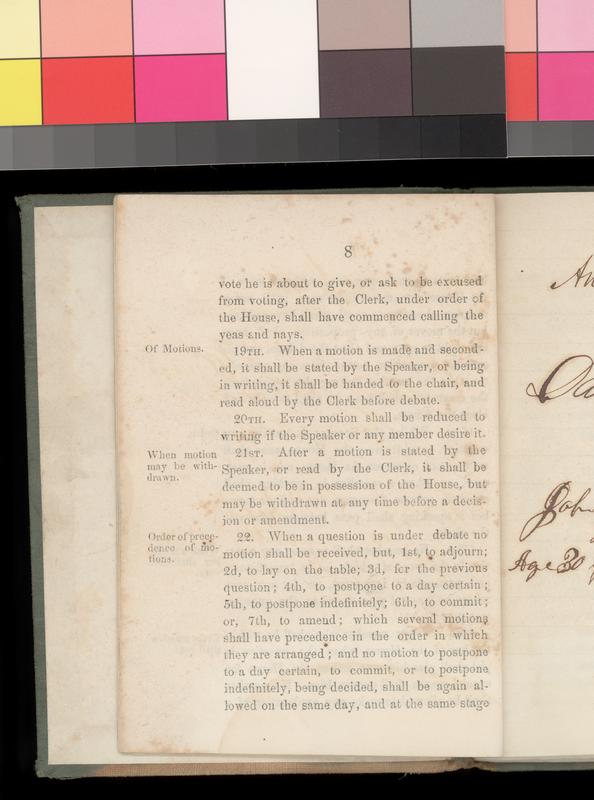 8
vote he is about to give, or ask to be excused
from voting, after the Clerk, under order of
the House, shall have commenced calling the
yeas and nays.
Of Motions.
19TH. When a motion is made and second-
ed, it shall be stated by the Speaker, or being
in writing, it shall be handed to the chair, and
read aloud by the Clerk before debate.
20TH. Every motion shall be reduced to
writing if the Speaker or any member desire it.
When motion
may be with-
drawn.
21ST. After a motion is stated by the
Speaker, or read by the Clerk, it shall be
deemed to be in possession of the House, but
may be withdrawn at any time before a decis-
ion or amendment.
Order of prece-
dence of mo-
tions.
22. When a question is under debate no
motion shall be received, but, 1st, to adjourn;
2d, to lay on the table; 3d, for the previous
question; 4th, to postpone to a day certain;
5th, to postpone indefinitely; 6th, to commit;
or, 7th, to amend; which several motions
shall have precedence in the order in which
they are arranged; and no motion to postpone
to a day certain, to commit, or to postpone
indefinitely, being decided, shall be again al-
lowed on the same day, and at the same stage
Age 30